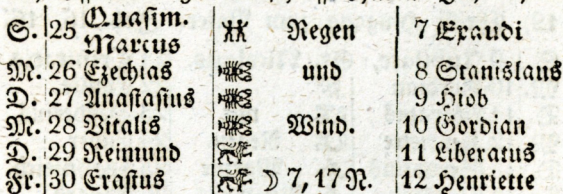 S. 25 Quasim. Regen 7 Exaudi
Marcus
M. 26 Ezechias und 8 Stanislaus
D. 27 Anastasius 9 Hiob
M. 28 Vitalis Wind. 10 Gordian
D. 29 Reimund 11 Liberatus
Fr. 30 Erastus ☽ 7, 17 N. 12 Henriette